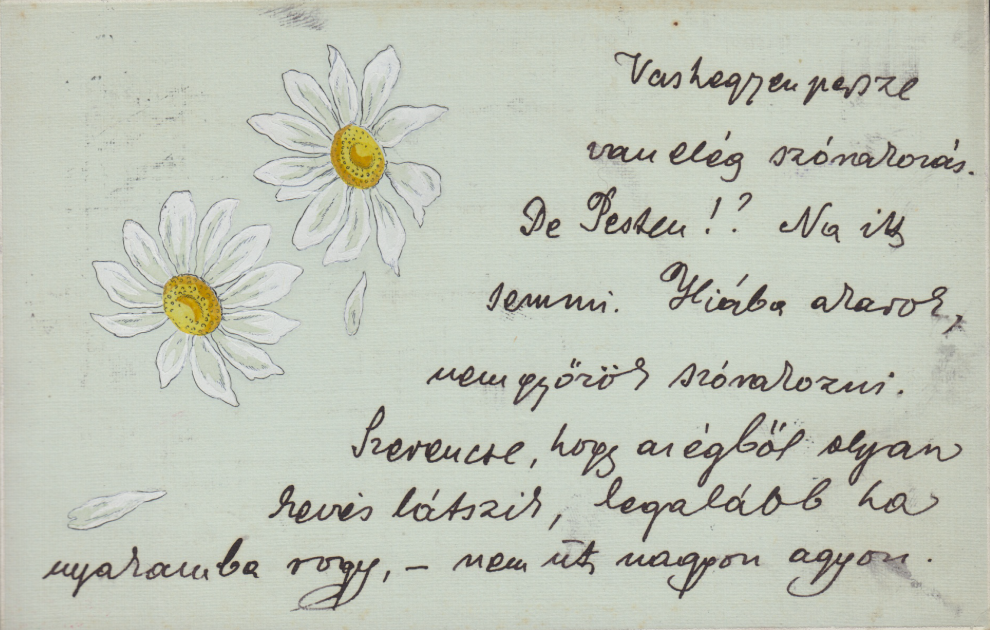 Vashegyen persze
van elég szórakozás.
De Pesten!? Na itt
semmi. Hiába akarok,
nem győzök szórakozni.
Szerencse, hogy az égből olyan
kevés látszik, legalább ha
nyakamba rogy, – nem üt nagyon agyon.